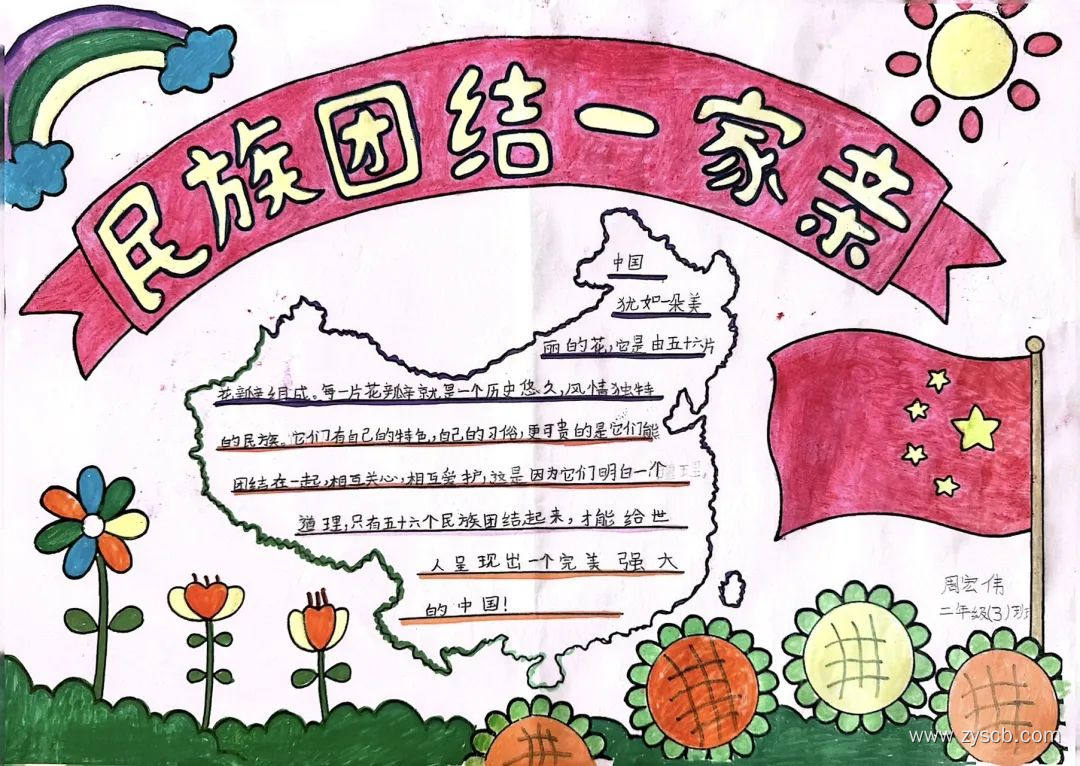 民族团结一家亲
中国
犹如一朵美
丽的花,它是由五十六片
花瓣组成。每一片花瓣就是一个历史悠久,风情独特
的民族。它们有自己的特色,自己的习俗,更可贵的是它们能
团结在一起,相互关心,相互爱护,这是因为它们明白一个
道理,只有五十六个民族团结起来,才能给世
人呈现出一个完美强大
的中国!
周宏伟
二年级(3)班
www.zyscb.com